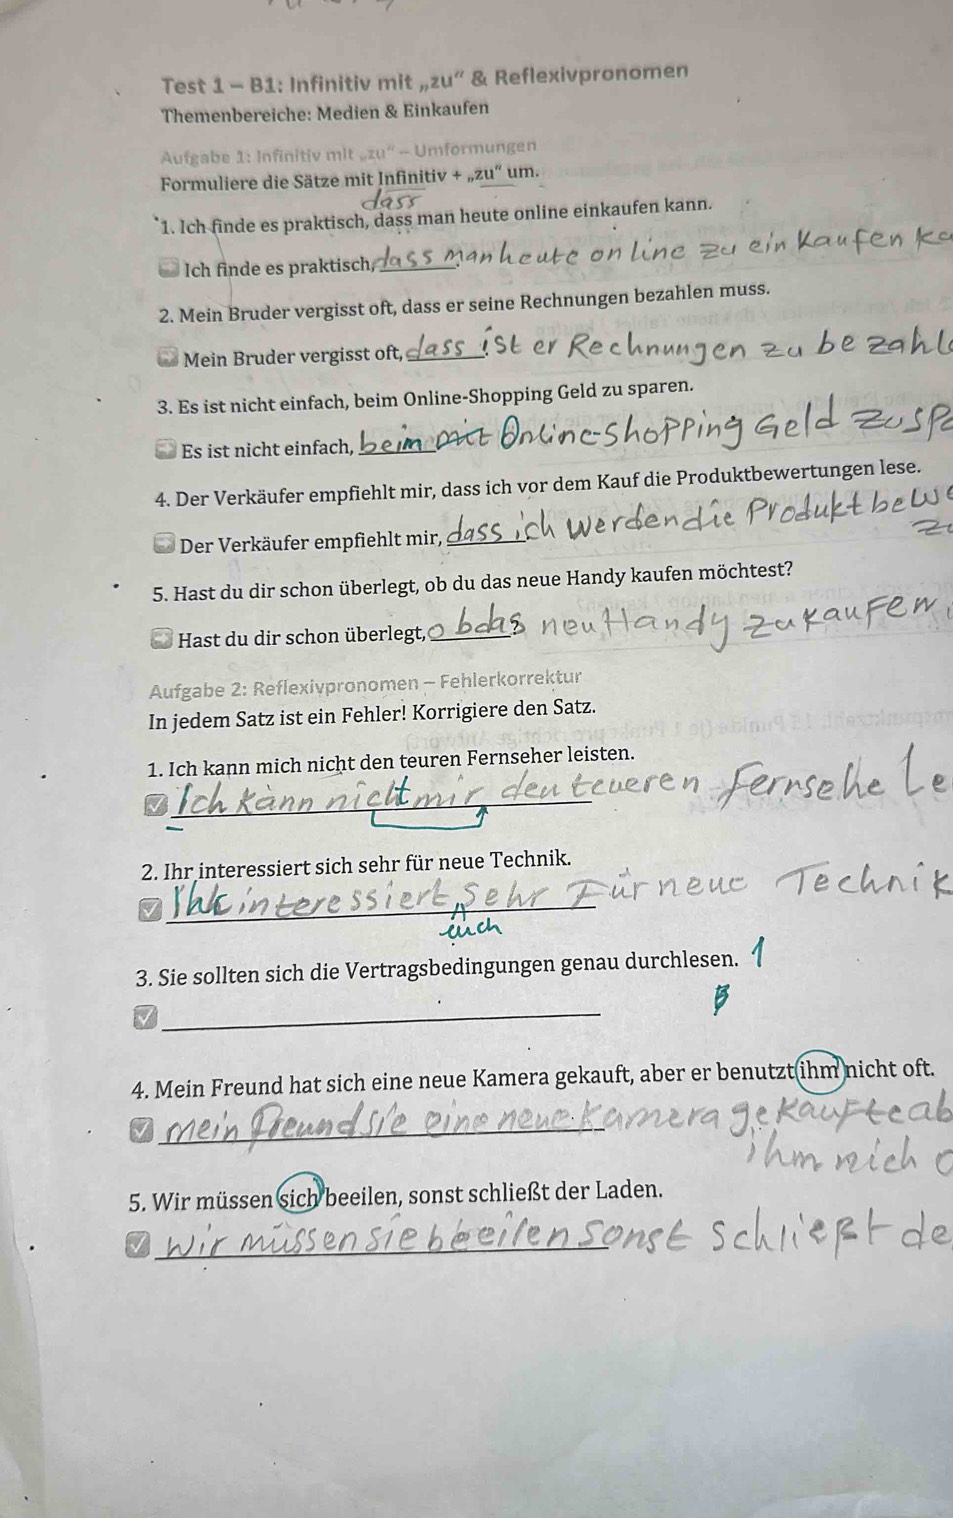 Test 1 – B1: Infinitiv mit „zu“ & Reflexivpronomen
Themenbereiche: Medien & Einkaufen
Aufgabe 1: Infinitiv mit „zu“ – Umformungen
Formuliere die Sätze mit Infinitiv + „zu“ um.
dass
1. Ich finde es praktisch, dass man heute online einkaufen kann.
Ich finde es praktisch, dass man heute online zu einkaufen ka
2. Mein Bruder vergisst oft, dass er seine Rechnungen bezahlen muss.
Mein Bruder vergisst oft, dass ist er Rechnungen zu bezahl
3. Es ist nicht einfach, beim Online-Shopping Geld zu sparen.
Es ist nicht einfach, beim mit Online-shopping Geld zu spa
4. Der Verkäufer empfiehlt mir, dass ich vor dem Kauf die Produktbewertungen lese.
Der Verkäufer empfiehlt mir, dass ich werden die Produktbew
z
5. Hast du dir schon überlegt, ob du das neue Handy kaufen möchtest?
Hast du dir schon überlegt, ob das neu Handy zu kaufen
Aufgabe 2: Reflexivpronomen – Fehlerkorrektur
In jedem Satz ist ein Fehler! Korrigiere den Satz.
1. Ich kann mich nicht den teuren Fernseher leisten.
Ich kann nicht mir den teueren Fernsehe le
2. Ihr interessiert sich sehr für neue Technik.
Ihr interessiert sehr Für neue Technik
euch
3. Sie sollten sich die Vertragsbedingungen genau durchlesen. 1
4. Mein Freund hat sich eine neue Kamera gekauft, aber er benutzt ihm nicht oft.
mein freund sie eine neue Kamera gekaufte ab
ihm nich o
5. Wir müssen sich beeilen, sonst schließt der Laden.
Wir müssen sie beeilen sonst schließt de